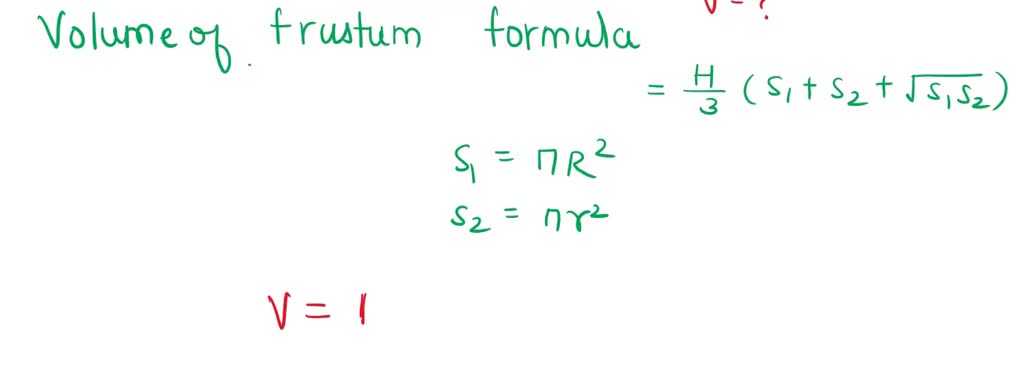 V = ?
Volume of frustum formula
= H/3 (S₁ + S₂ + √S₁S₂)
S₁ = πR²
S₂ = πr²
V = 1